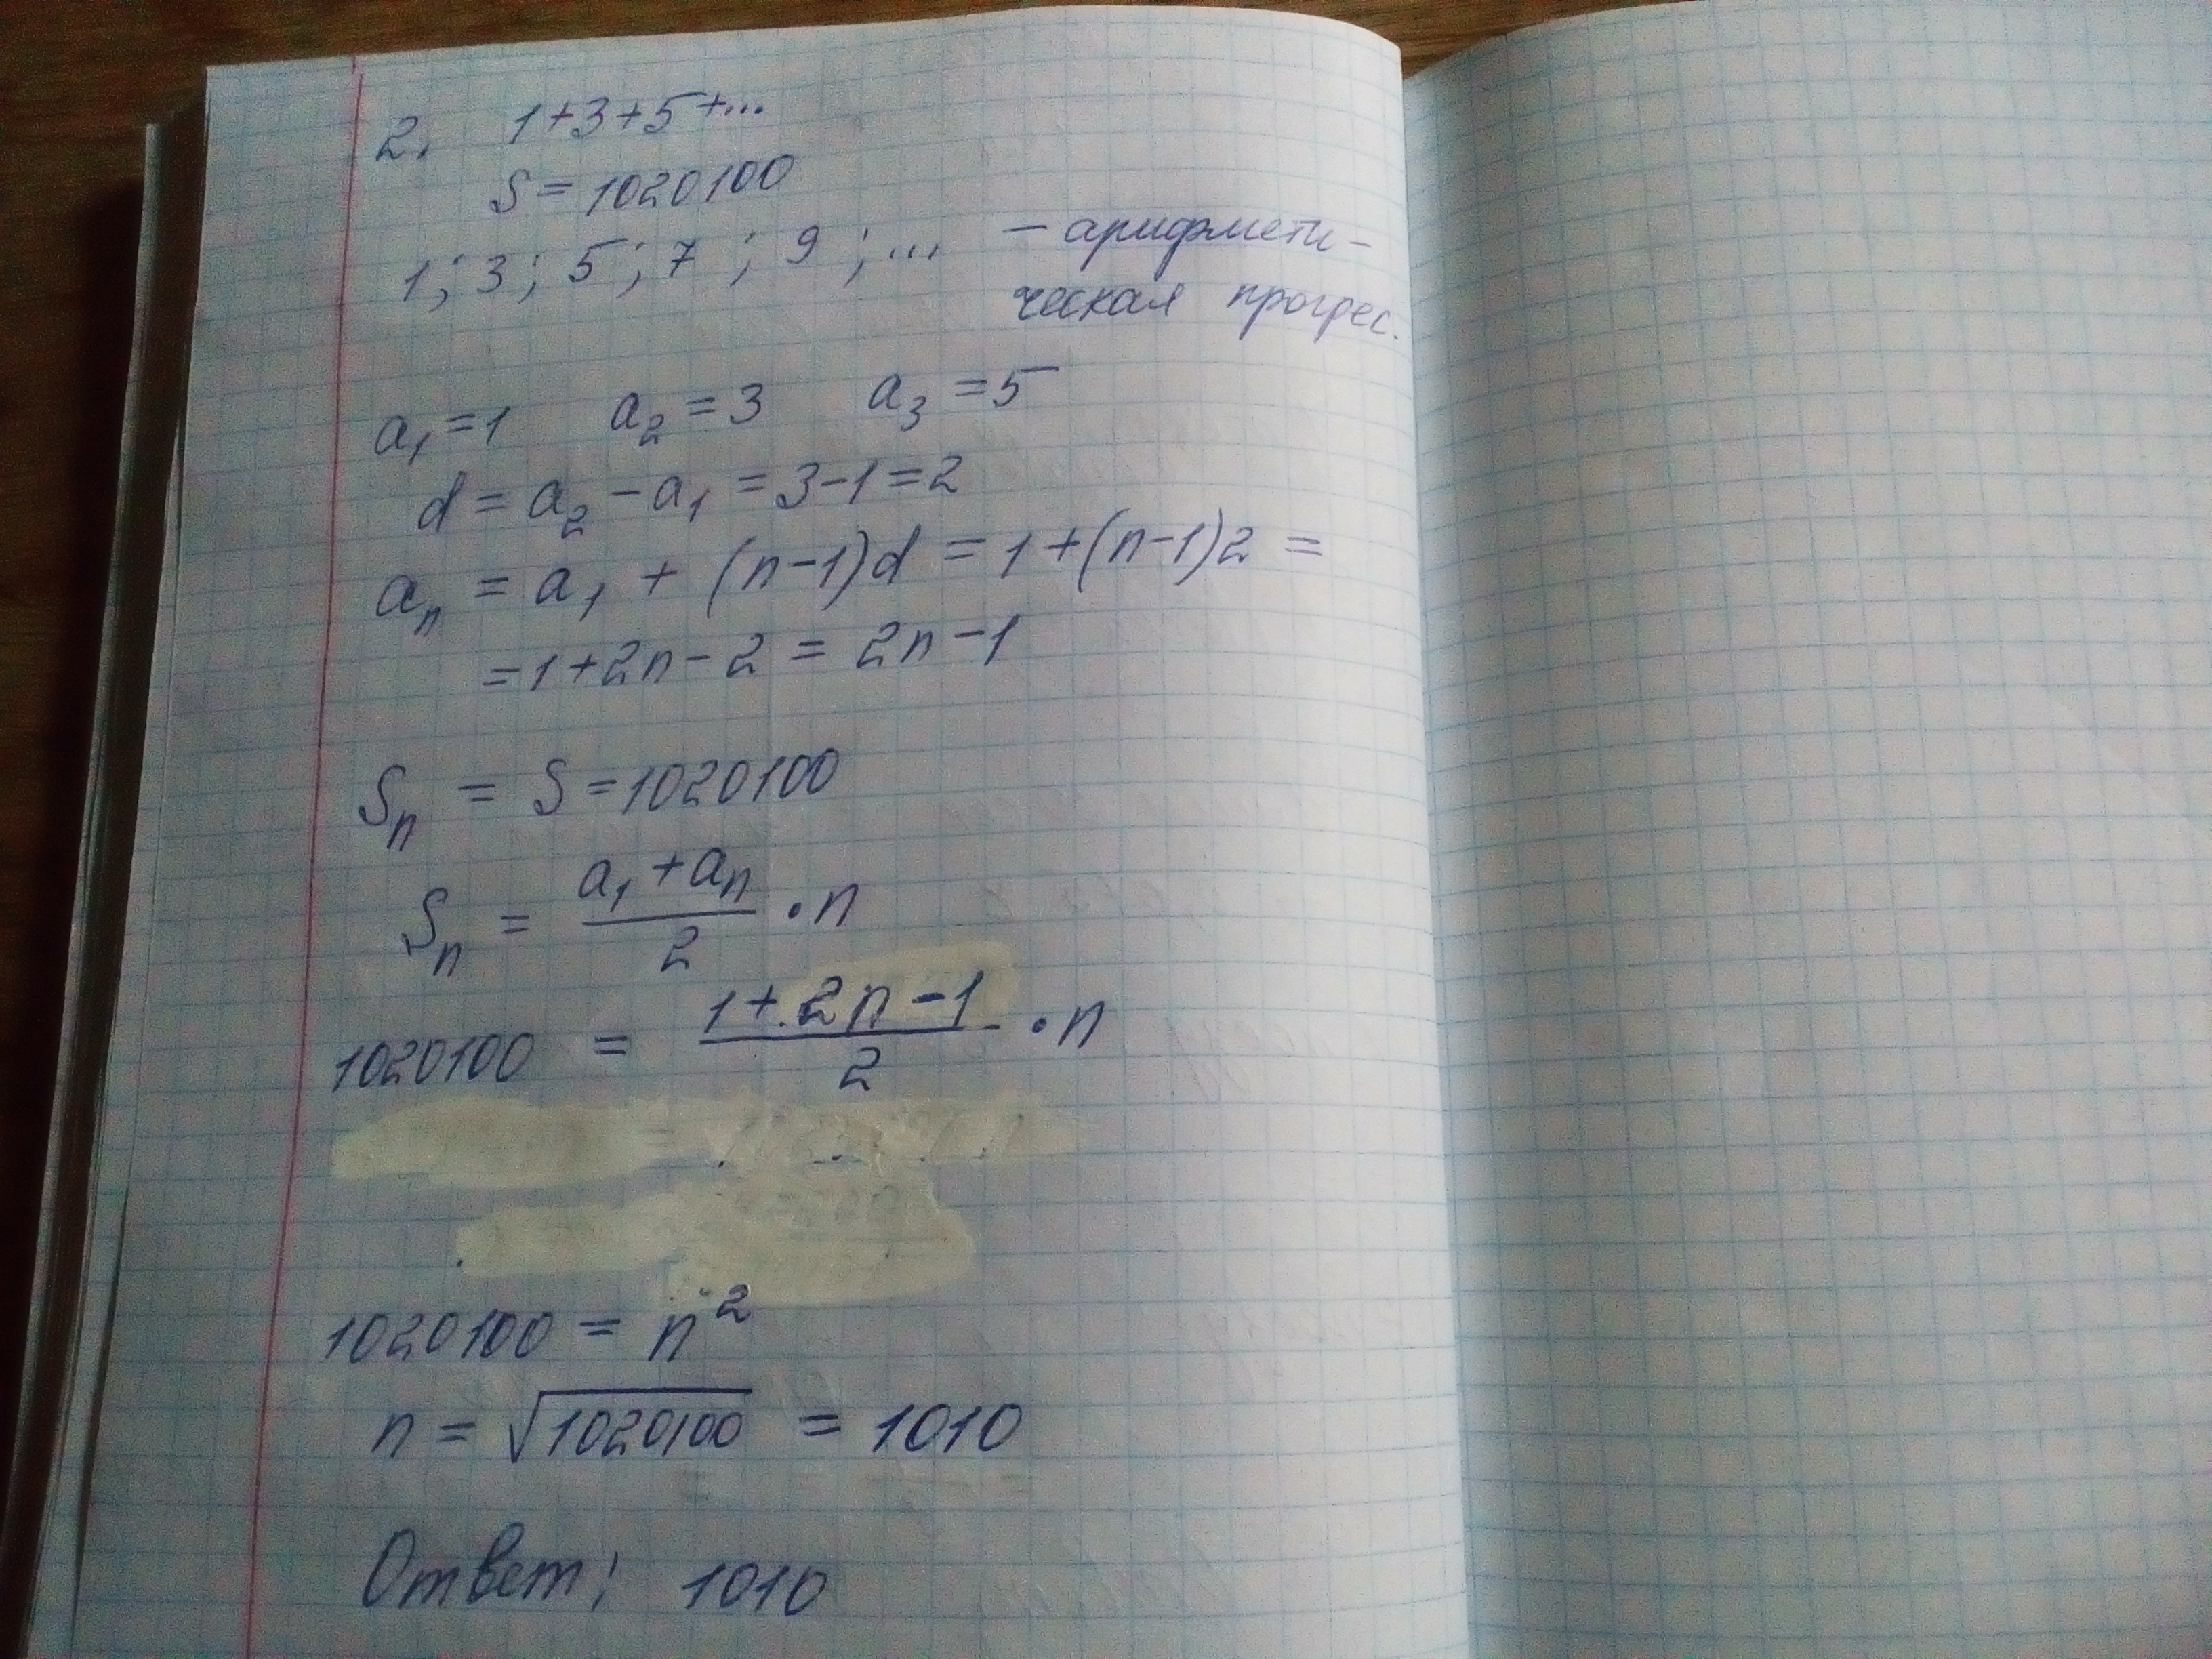 2. 1+3+5+...
S = 1020100
1; 3; 5; 7; 9; ... – арифмети-
ческая прогрес.
a₁=1 a₂=3 a₃=5
d = a₂ – a₁ = 3–1 = 2
aₙ = a₁ + (n–1)d = 1+(n–1)2 =
= 1+2n–2 = 2n–1
Sₙ = S = 1020100
Sₙ = (a₁+aₙ)/2 · n
1020100 = (1+2n–1)/2 · n
1020100 = n²
n = √1020100 = 1010
Ответ: 1010